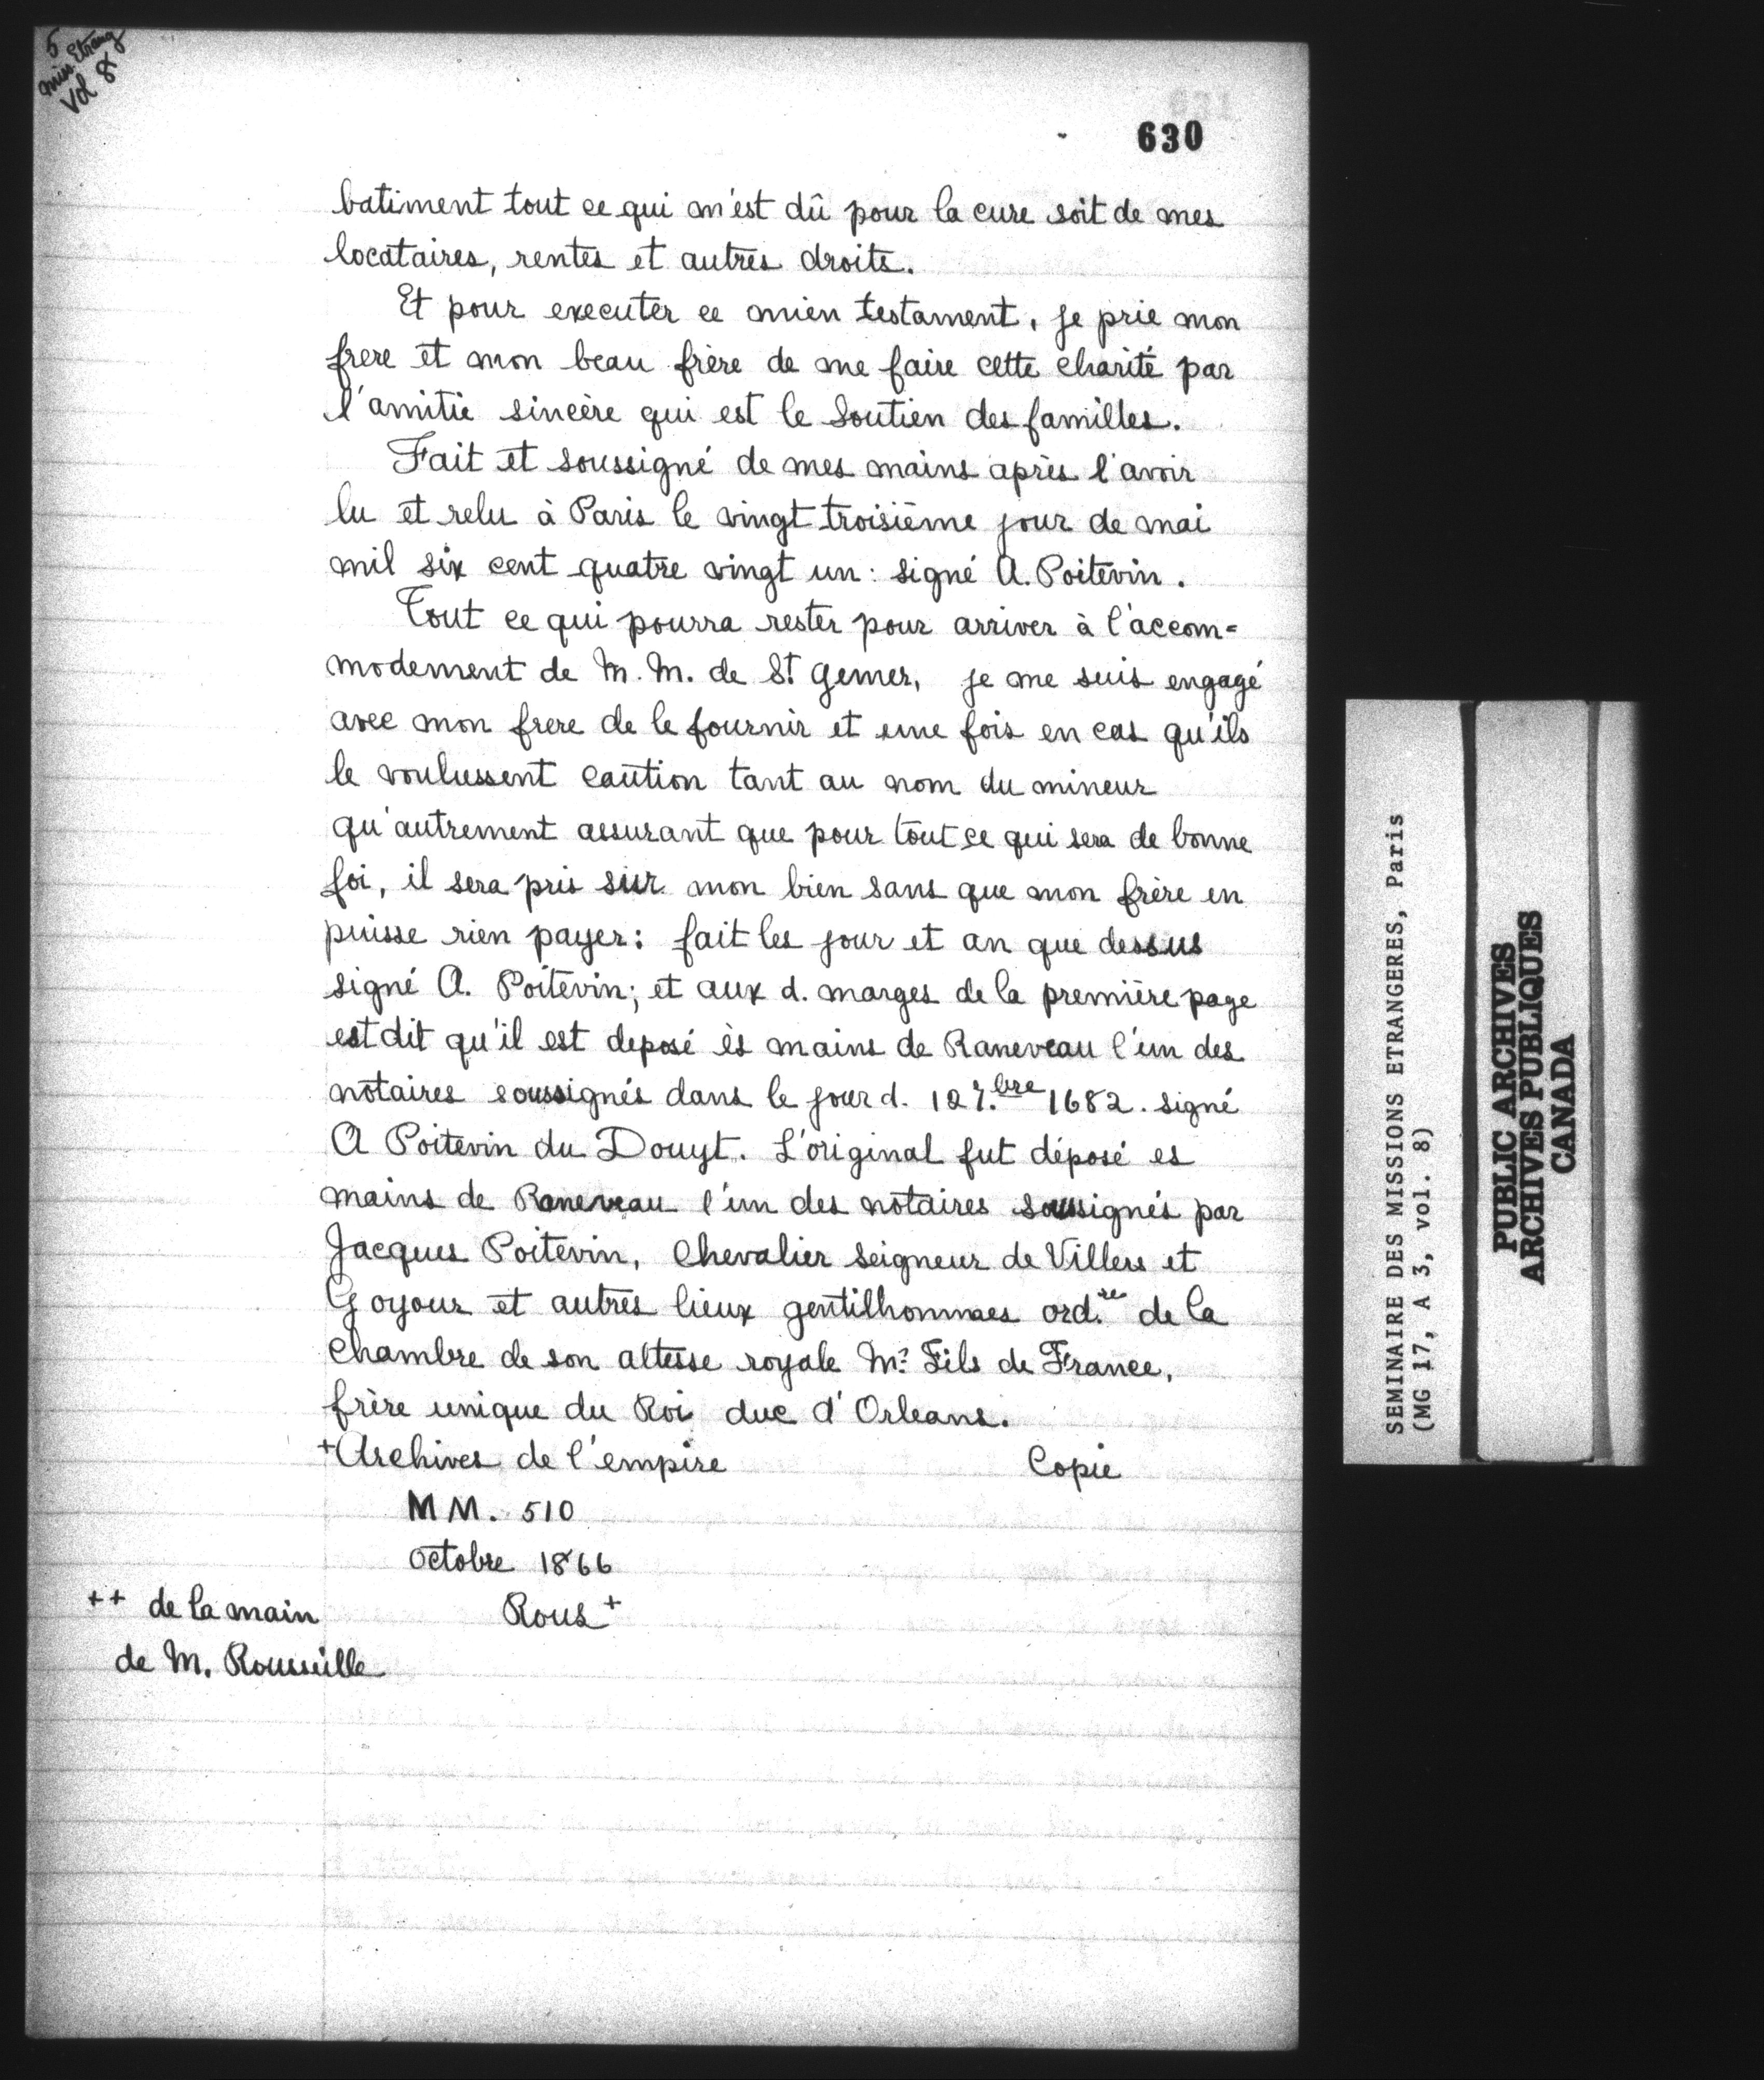 5
Miss. Etrang
Vol 8
630
batiment tout ce qui m'est dû pour la cure soit de mes
locataires, rentes et autres droits.
Et pour executer ce mien testament, je prie mon
frere et mon beau frère de me faire cette charité par
l'amitié sincère qui est le soutien des familles.
Fait et soussigné de mes mains après l'avoir
lu et relu à Paris le vingt troisième jour de mai
mil six cent quatre vingt un: signé A. Poitevin.
Tout ce qui pourra rester pour arriver à l'accom=
modement de M. M. de St Gemer, je me suis engagé
avec mon frere de le fournir et une fois en cas qu'ils
le voulussent caution tant au nom du mineur
qu'autrement assurant que pour tout ce qui sera de bonne
foi, il sera pris sur mon bien sans que mon frère en
puisse rien payer: fait les jour et an que dessus
signé A. Poitevin; et aux d. marges de la première page
est dit qu'il est deposé ès mains de Raneveau l'un des
notaires soussignés dans le jour d. 12 7.bre 1682. signé
A Poitevin du Douyt. L'original fut déposé es
mains de Raneveau l'un des notaires soussignés par
Jacques Poitevin, Chevalier seigneur de Villers et
Goyour et autres lieux gentilhommes ord.re de la
chambre de son altesse royale Mr Fils de France,
frère unique du Roi duc d'Orleans.
+Archives de l'empire Copie
MM. 510
Octobre 1866
++ de la main Rous +
de M. Rousseille
SEMINAIRE DES MISSIONS ETRANGERES, Paris
(MG 17, A 3, vol. 8)
PUBLIC ARCHIVES
ARCHIVES PUBLIQUES
CANADA